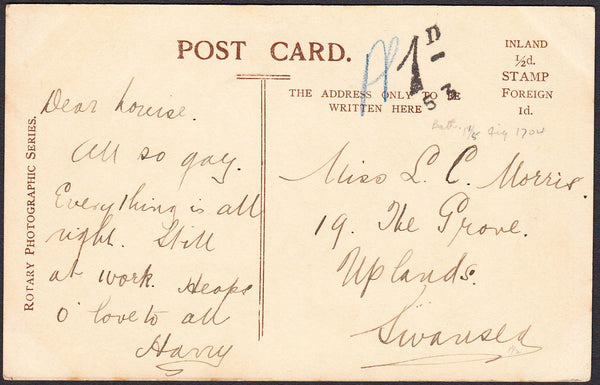 POST CARD.
1D
53
INLAND
½d.
STAMP
FOREIGN
1d.
THE ADDRESS ONLY TO BE
WRITTEN HERE
ROTARY PHOTOGRAPHIC SERIES.
Dear Louise.
All so gay.
Everything is all
right. Still
at work. Heaps
O' love to all
Harry
Miss L. C. Morris.
19. The Grove.
Uplands.
Swansea